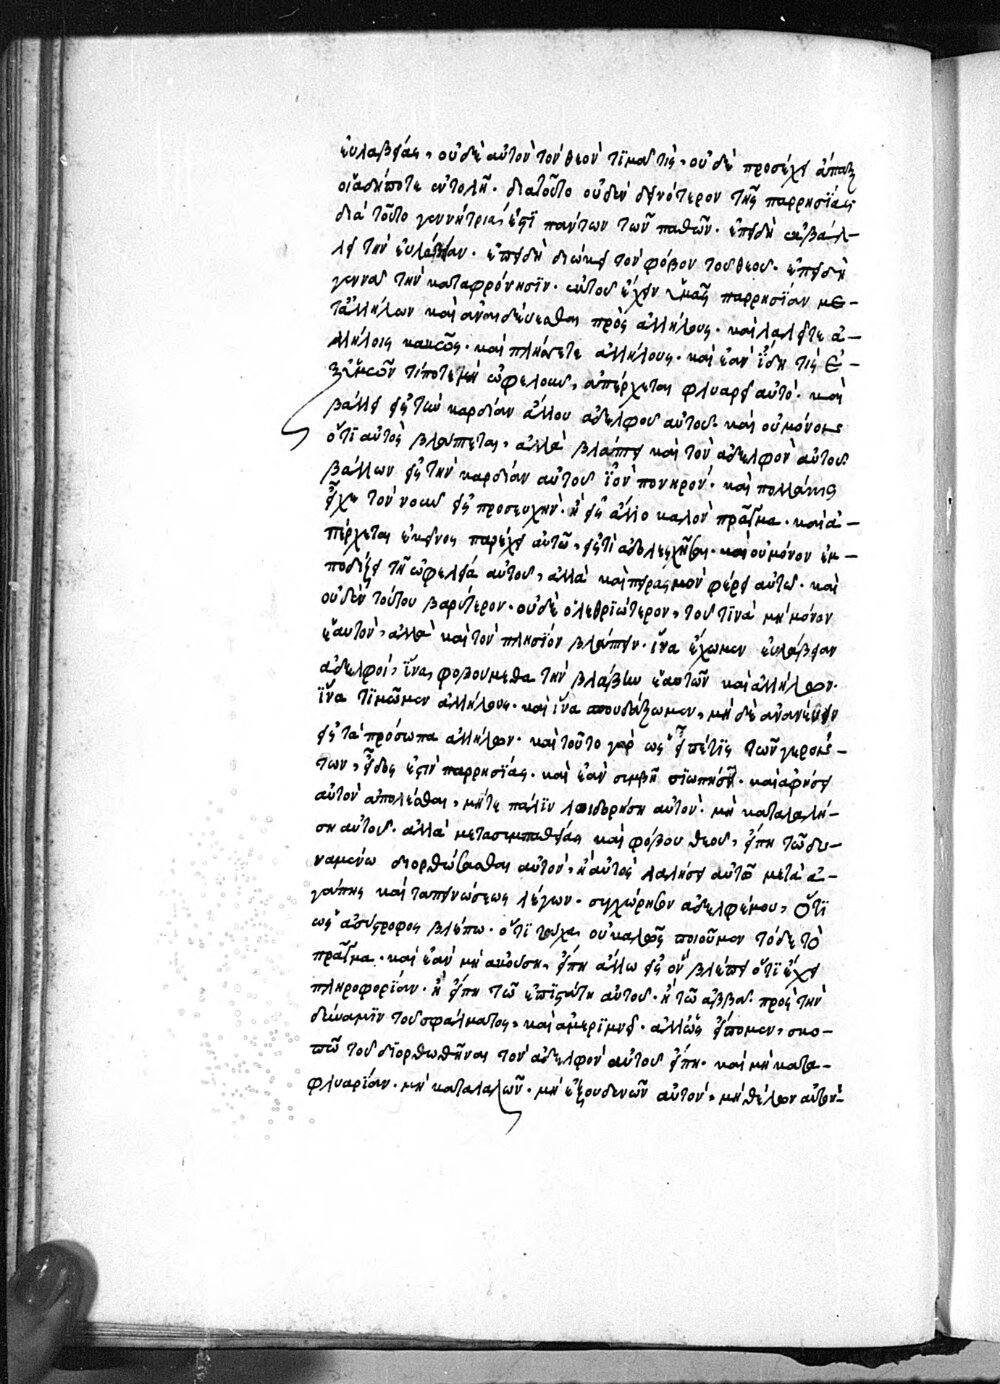 εὐλαβείας, οὐδὲ αὐτὸν τὸν θεὸν τϊμαῖ τὶς, οὐδὲ προσέχει ἅπαξ
οἱᾶσδήποτε ἐντολῆ· διατοῦτο οὐδὲν δεινότερον τῆς παρρησίας
διὰ τοῦτο γεννήτρια ἐστὶ πάντων τῶν παθῶν· ἐπειδὴ ἐκβάλ-
λει τὴν εὐλάβειαν· ἐπειδὴ διώκει τὸν φόβον τοῦ θεοῦ· ἐπειδὴ
γεννᾶ τὴν καταφρόνησϊν· ἐκτοῦ ἔχειν ὑμᾶς παρρησίαν με-
τἀλλήλων καὶ ἀναιδεύεσθαι πρὸς ἀλλήλους· καὶ λαλεῖτε ἀ-
λλήλοις κακῶς· καὶ πλήσσετε ἀλλήλους· καὶ ἐὰν ἴδη τὶς ἐ-
ξ ὑμῶν τίποτε μὴ ὠφελοῦν, ἀπέρχεται φλυαρεῖ αὐτό· καὶ
βάλλει εἰς τὴν καρδίαν ἄλλου ἀδελφοῦ αὐτοῦ· καὶ οὐ μόνον
ὅτϊ αὐτὸς βλάπτεται, ἀλλὰ βλάπτει καὶ τὸν ἀδελφὸν αὐτοῦ
βάλλων εἰς τὴν καρδίαν αὐτοῦ ἰὸν πονηρόν· καὶ πολλάκις
εἶχε τὸν νοῦν εἰς προσευχὴν· ἢ εἰς ἄλλο καλὸν πρᾶγμα· καὶ ἀ-
πέρχεται ἐκεῖνος παρέχει αὐτῶ, εἰς τὶ ἀδολεσχῆσαι· καὶ οὐ μόνον ἐμ-
ποδίζει τὴν ὠφέλειαν αὐτοῦ, ἀλλὰ καὶ πειρασμὸν φέρει αὐτῶ· καὶ
οὐδὲν τούτου βαρύτερον· οὐδὲ ὀλεθριώτερον, τοῦ τϊνὰ μὴ μόνον
ἑαυτὸν, ἀλλὰ καὶ τὸν πλησίον βλάπτειν· ἵνα ἔχωμεν εὐλάβειαν
ἀδελφοί, ἵνα φοβούμεθα τὴν βλάβην ἑαυτῶν καὶ ἀλλήλων·
ἵνα τϊμῶμεν ἀλλήλους· καὶ ἵνα σπουδάζωμεν, μὴ δὲ ἀνανεύειν
εἰς τὰ πρόσωπα ἀλλήλων· καὶ τοῦτο γὰρ ὡς εἶπέ τϊς τῶν γερόν-
των, εἶδος ἐστὶν παρρησίας· καὶ ἐὰν συμβῆ σϊωπήση· καὶ ἀφήσει
αὐτὸν ἀπολέσθαι, μήτε πάλϊν λοιδορήση αὐτὸν· μὴ καταλαλή-
ση αὐτοῦ· ἀλλὰ μετασυμπαθείας καὶ φόβου θεοῦ, εἴπη τῶ δυ-
ναμένω διορθώσασθαι αὐτόν, ἢ αὐτὸς λαλήσει αὐτῶ μετὰ ἀ-
γάπης καὶ ταπεινώσεως λέγων· συγχώρησον ἀδελφέμου, ὅτϊ
ὡς ἀσύστροφος βλέπω· ὅτϊ τύχα οὐ καλῶς ποιοῦμεν τόδε τὸ
πρᾶγμα· καὶ ἐὰν μὴ ἀκούση, εἴπη ἄλλω εἰς ὃν βλέπει ὅτι ἔχει
πληροφορίαν· ἢ εἴπη τῶ ἐπϊστάτη αὐτοῦ· ἢ τῶ ἀββᾶ· πρὸς τὴν
δύναμϊν τοῦ σφάλματος, καὶ ἀμερϊμνεῖ· ἀλλὡς εἴπομεν, σκο-
πῶ τοῦ δϊορθωθῆναι τὸν ἀδελφὸν αὐτοῦ εἴπη· καὶ μὴ κατα-
φλυαρίαν· μὴ καταλαλῶν· μὴ ἐξουδενῶν αὐτόν, μὴ θέλων αὐτὸν